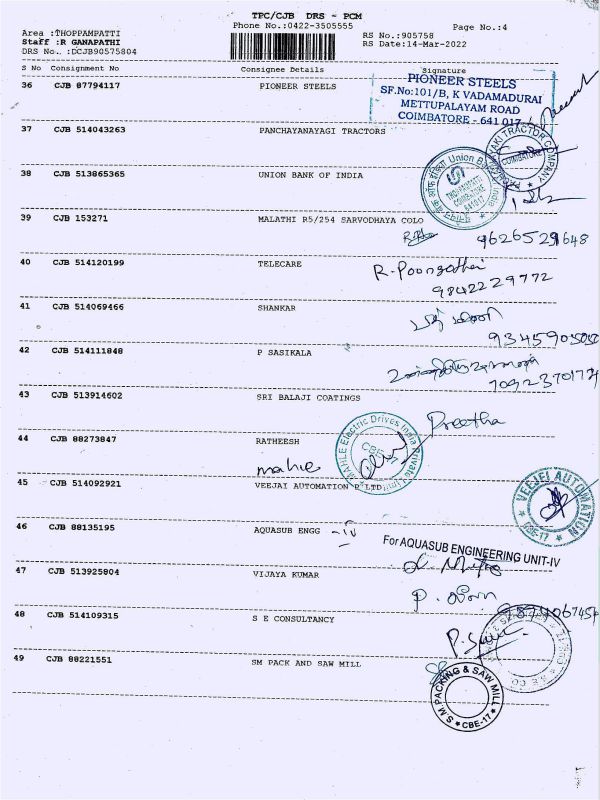 TPC/CJB DRS - PCM
Phone No.:0422-3505555
Page No.:4
Area :THOPPAMPATTI
Staff :R GANAPATHI
DRS No. :DCJB90575804
RS No.:905758
RS Date:14-Mar-2022
S No Consignment No Consignee Details Signature
36 CJB 87794117 PIONEER STEELS
PIONEER STEELS
SF.No:101/B, K VADAMADURAI
METTUPALAYAM ROAD
COIMBATORE - 641 017
37 CJB 514043263 PANCHAYANAYAGI TRACTORS
COIMBATORE
38 CJB 513865365 UNION BANK OF INDIA
39 CJB 153271 MALATHI R5/254 SARVODHAYA COLO
9626529648
40 CJB 514120199 TELECARE
R. Poongothai
9842229772
41 CJB 514069466 SHANKAR
42 CJB 514111848 P SASIKALA
43 CJB 513914602 SRI BALAJI COATINGS
Preetha
44 CJB 88273847 RATHEESH
MAHLE Electric Drives India Private Limited
mahle
45 CJB 514092921 VEEJAI AUTOMATION P LTD
VEEJAI AUTOMATION
CBE-17
46 CJB 88135195 AQUASUB ENGG - IV
For AQUASUB ENGINEERING UNIT-IV
47 CJB 513925804 VIJAYA KUMAR
48 CJB 514109315 S E CONSULTANCY
49 CJB 88221551 SM PACK AND SAW MILL
S M PACKING & SAW MILL
CBE-17